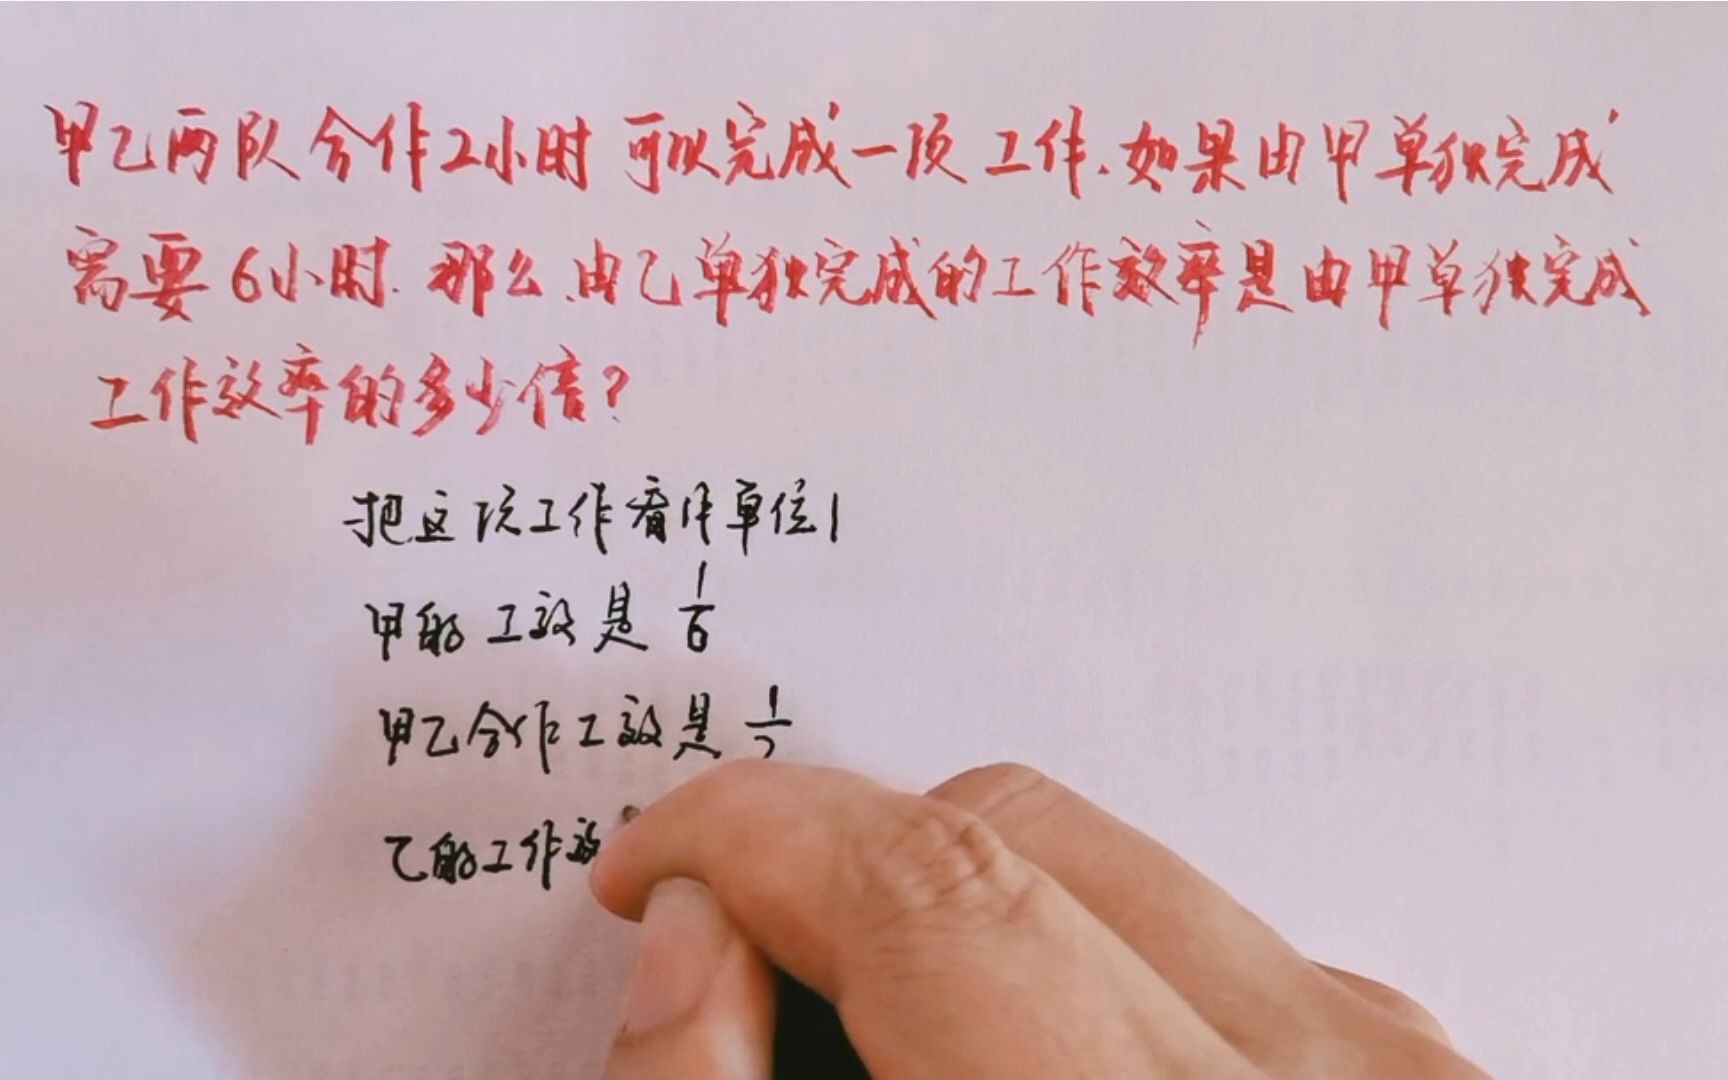 甲乙两队合作2小时可以完成一项工作.如果由甲单独完成
需要6小时.那么.由乙单独完成的工作效率是由甲单独完成
工作效率的多少倍?
把这项工作看作单位1
甲的工效是1/6
甲乙合作工效是1/2
乙的工作效